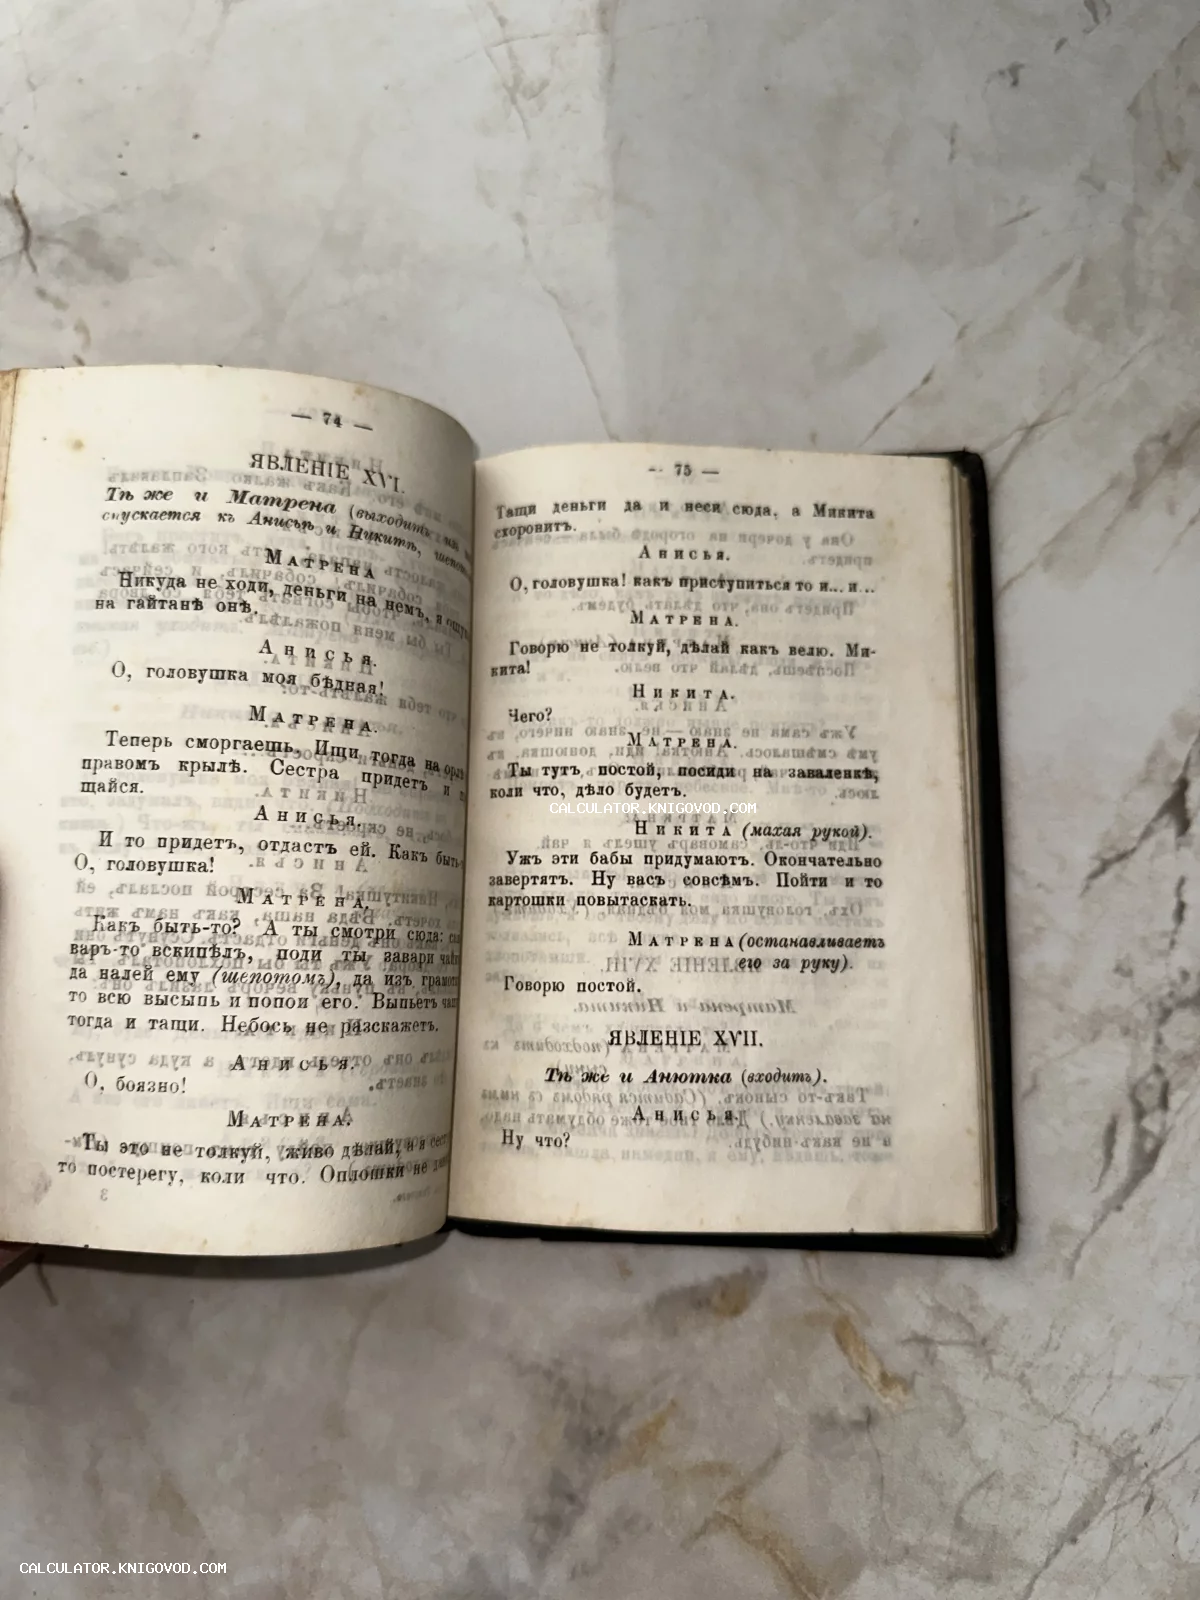 — 74 —
ЯВЛЕНІЕ XVI.
Тѣ же и Матрена (выходитъ
спускается къ Анисьѣ и Никитѣ,
МАТРЕНА
Никуда не ходи, деньги на немъ, я
на гайтанѣ онѣ.
Анисья.
О, головушка моя бѣдная!
МАТРЕНА.
Теперь сморгаешь. Ищи тогда на
правомъ крылѣ. Сестра придетъ и
щайся.
Анисья.
И то придетъ, отдастъ ей. Какъ быть
О, головушка!
МАТРЕНА.
Какъ быть-то? А ты смотри сюда:
варъ-то вскипѣлъ, поди ты завари
да налей ему (шепотомъ), да изъ
то всю высыпь и попои его. Выпьетъ
тогда и тащи. Небось не разскажетъ.
Анисья.
О, боязно!
МАТРЕНА.
Ты это не толкуй, живо дѣлай, а я
то постерегу, коли что. Оплошки не
3
— 75 —
Тащи деньги да и неси сюда, а Микита
схоронитъ.
Анисья.
О, головушка! какъ приступиться то и... и...
МАТРЕНА.
Говорю не толкуй, дѣлай какъ велю. Ми-
кита!
Никита.
Чего?
МАТРЕНА.
Ты тутъ постой, посиди на заваленкѣ,
коли что, дѣло будетъ.
Никита (махая рукой).
Ужъ эти бабы придумаютъ. Окончательно
завертятъ. Ну васъ совсѣмъ. Пойти и то
картошки повытаскать.
МАТРЕНА (останавливаетъ
его за руку).
Говорю постой.
ЯВЛЕНІЕ XVII.
Тѣ же и Анютка (входитъ).
Анисья.
Ну что?
CALCULATOR.KNIGOVOD.COM
CALCULATOR.KNIGOVOD.COM